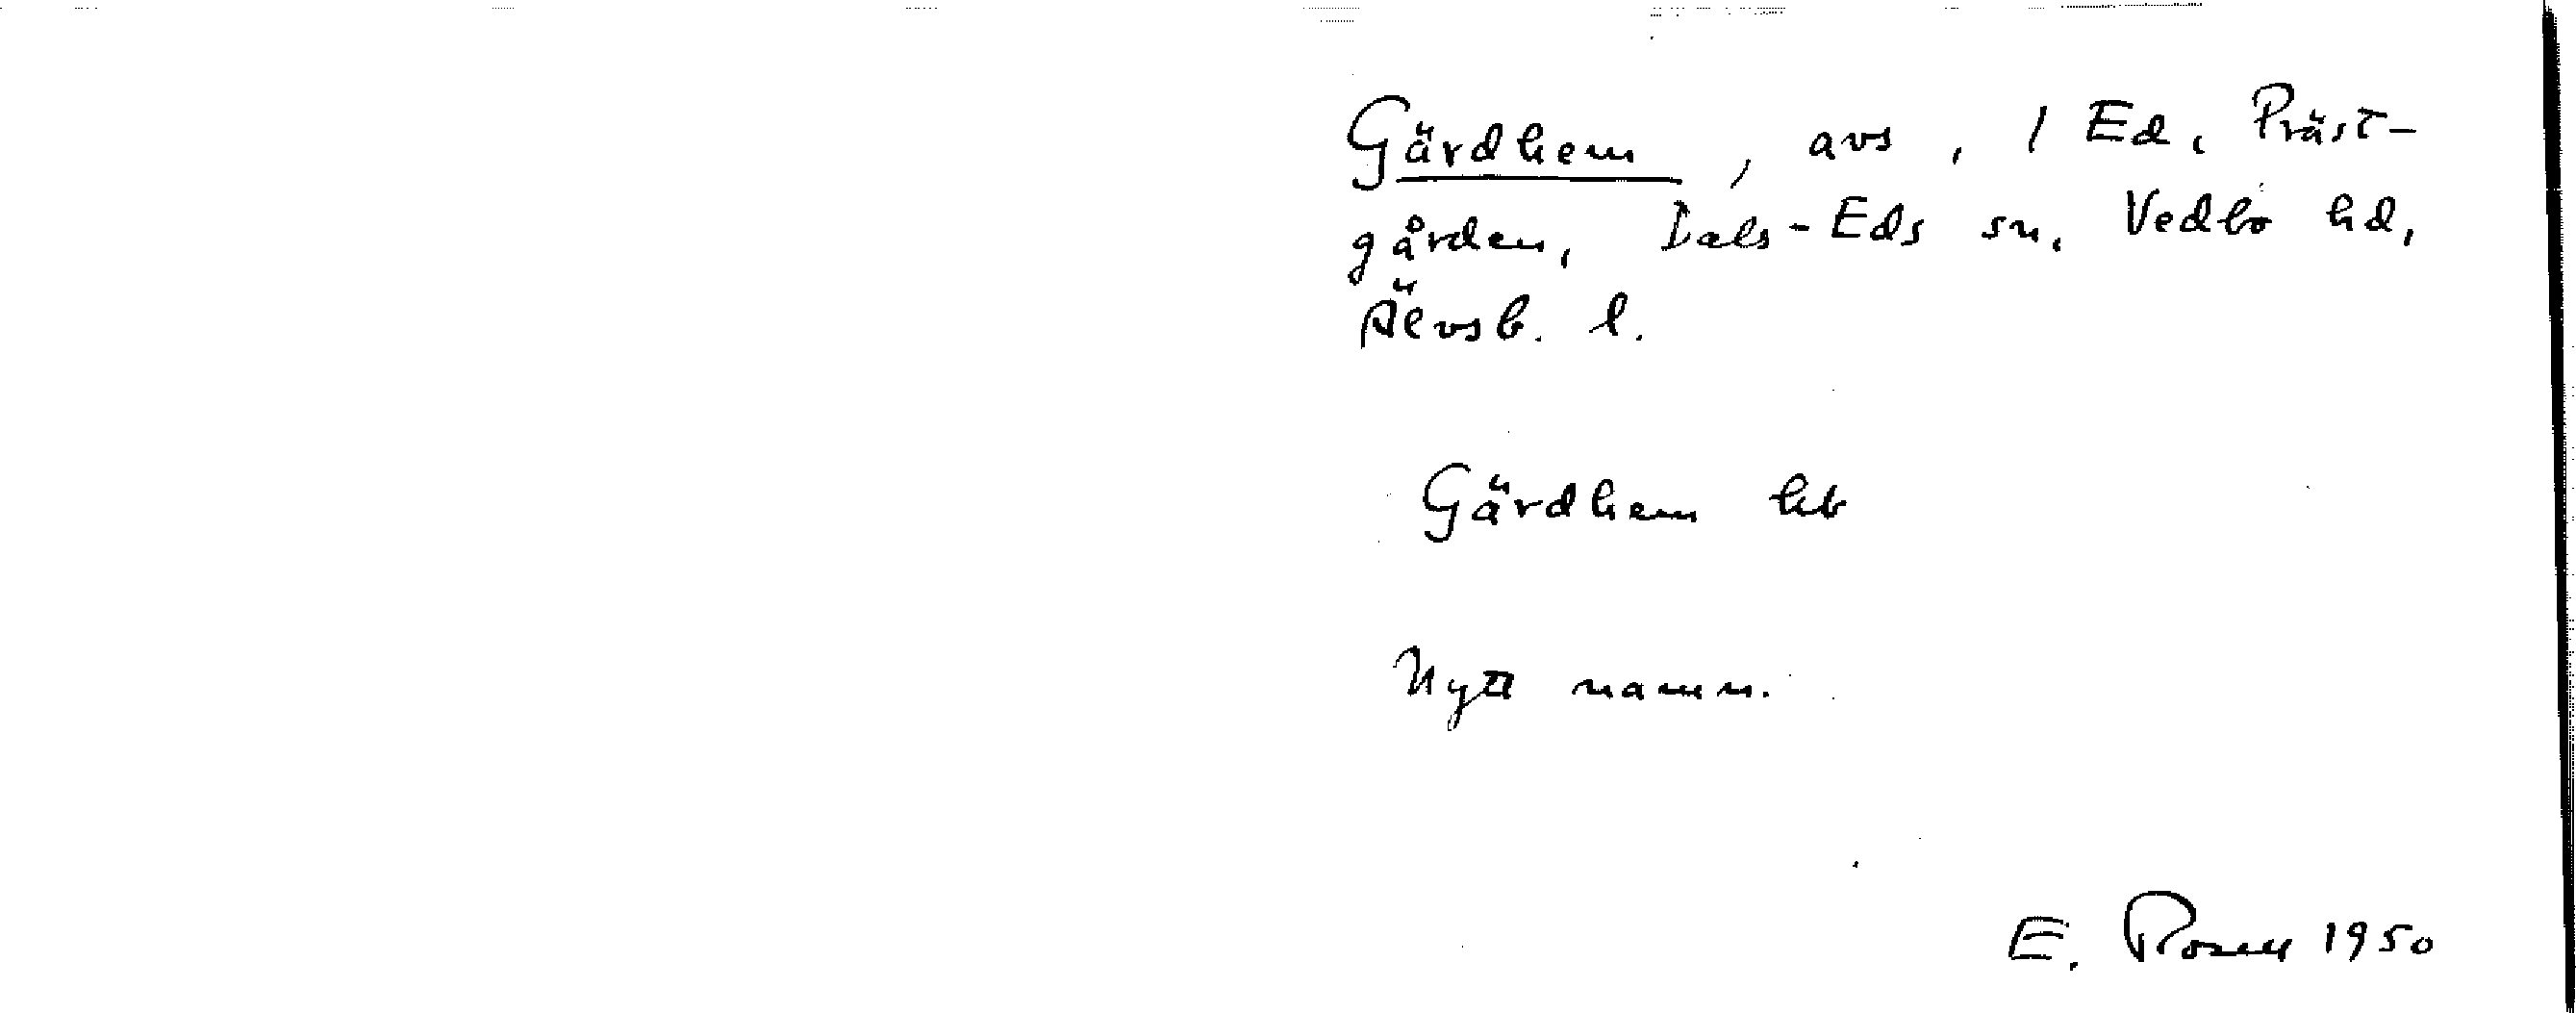 Gärdhem, avs, 1 Ed, Präst-
gården, Dals-Eds sn, Vedbo hd,
Älvsb. l.
Gärdhem kb
Nytt namn.
E. Rosell 1950